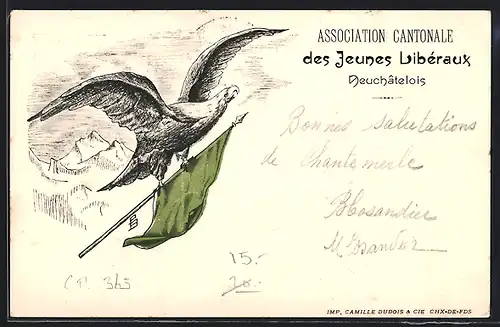 ASSOCIATION CANTONALE
des Jeunes Libéraux
Neuchâtelois
Bonnes salutations
de Chantemerle
15.-
20.-
CP. 345
IMP. CAMILLE DUBOIS & CIE CHX-DE-FDS